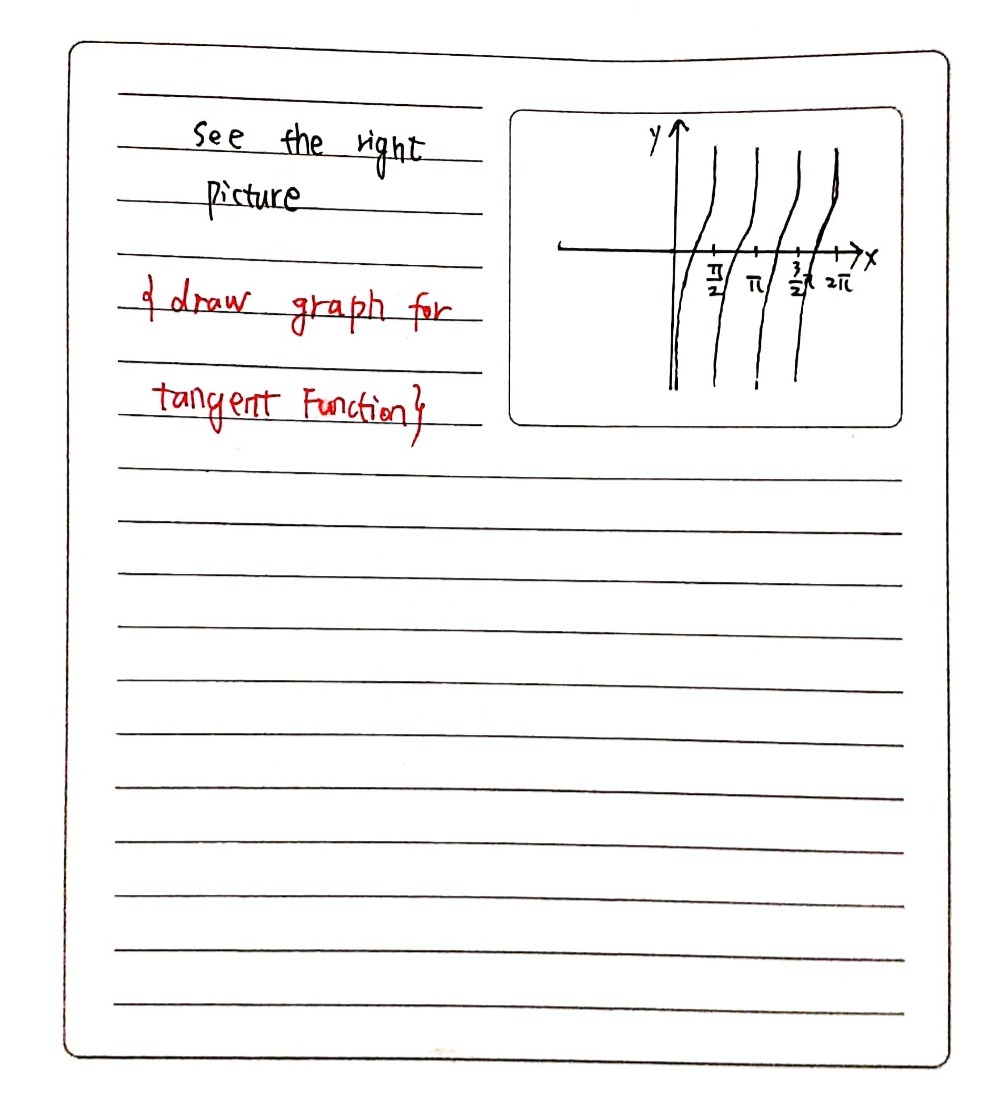 see the right
picture
{draw graph for
tangent Function}
y
x
π/2 π 3/2π 2π